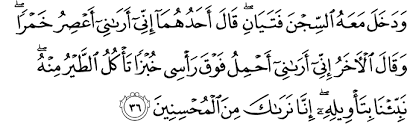 وَدَخَلَ مَعَهُ ٱلسِّجْنَ فَتَيَانِ ۖ قَالَ أَحَدُهُمَآ إِنِّىٓ أَرَىٰنِىٓ أَعْصِرُ خَمْرًا ۖ
وَقَالَ ٱلْـَٔاخَرُ إِنِّىٓ أَرَىٰنِىٓ أَحْمِلُ فَوْقَ رَأْسِى خُبْزًا تَأْكُلُ ٱلطَّيْرُ مِنْهُ ۖ
نَبِّئْنَا بِتَأْوِيلِهِۦٓ ۖ إِنَّا نَرَىٰكَ مِنَ ٱلْمُحْسِنِينَ ٣٦